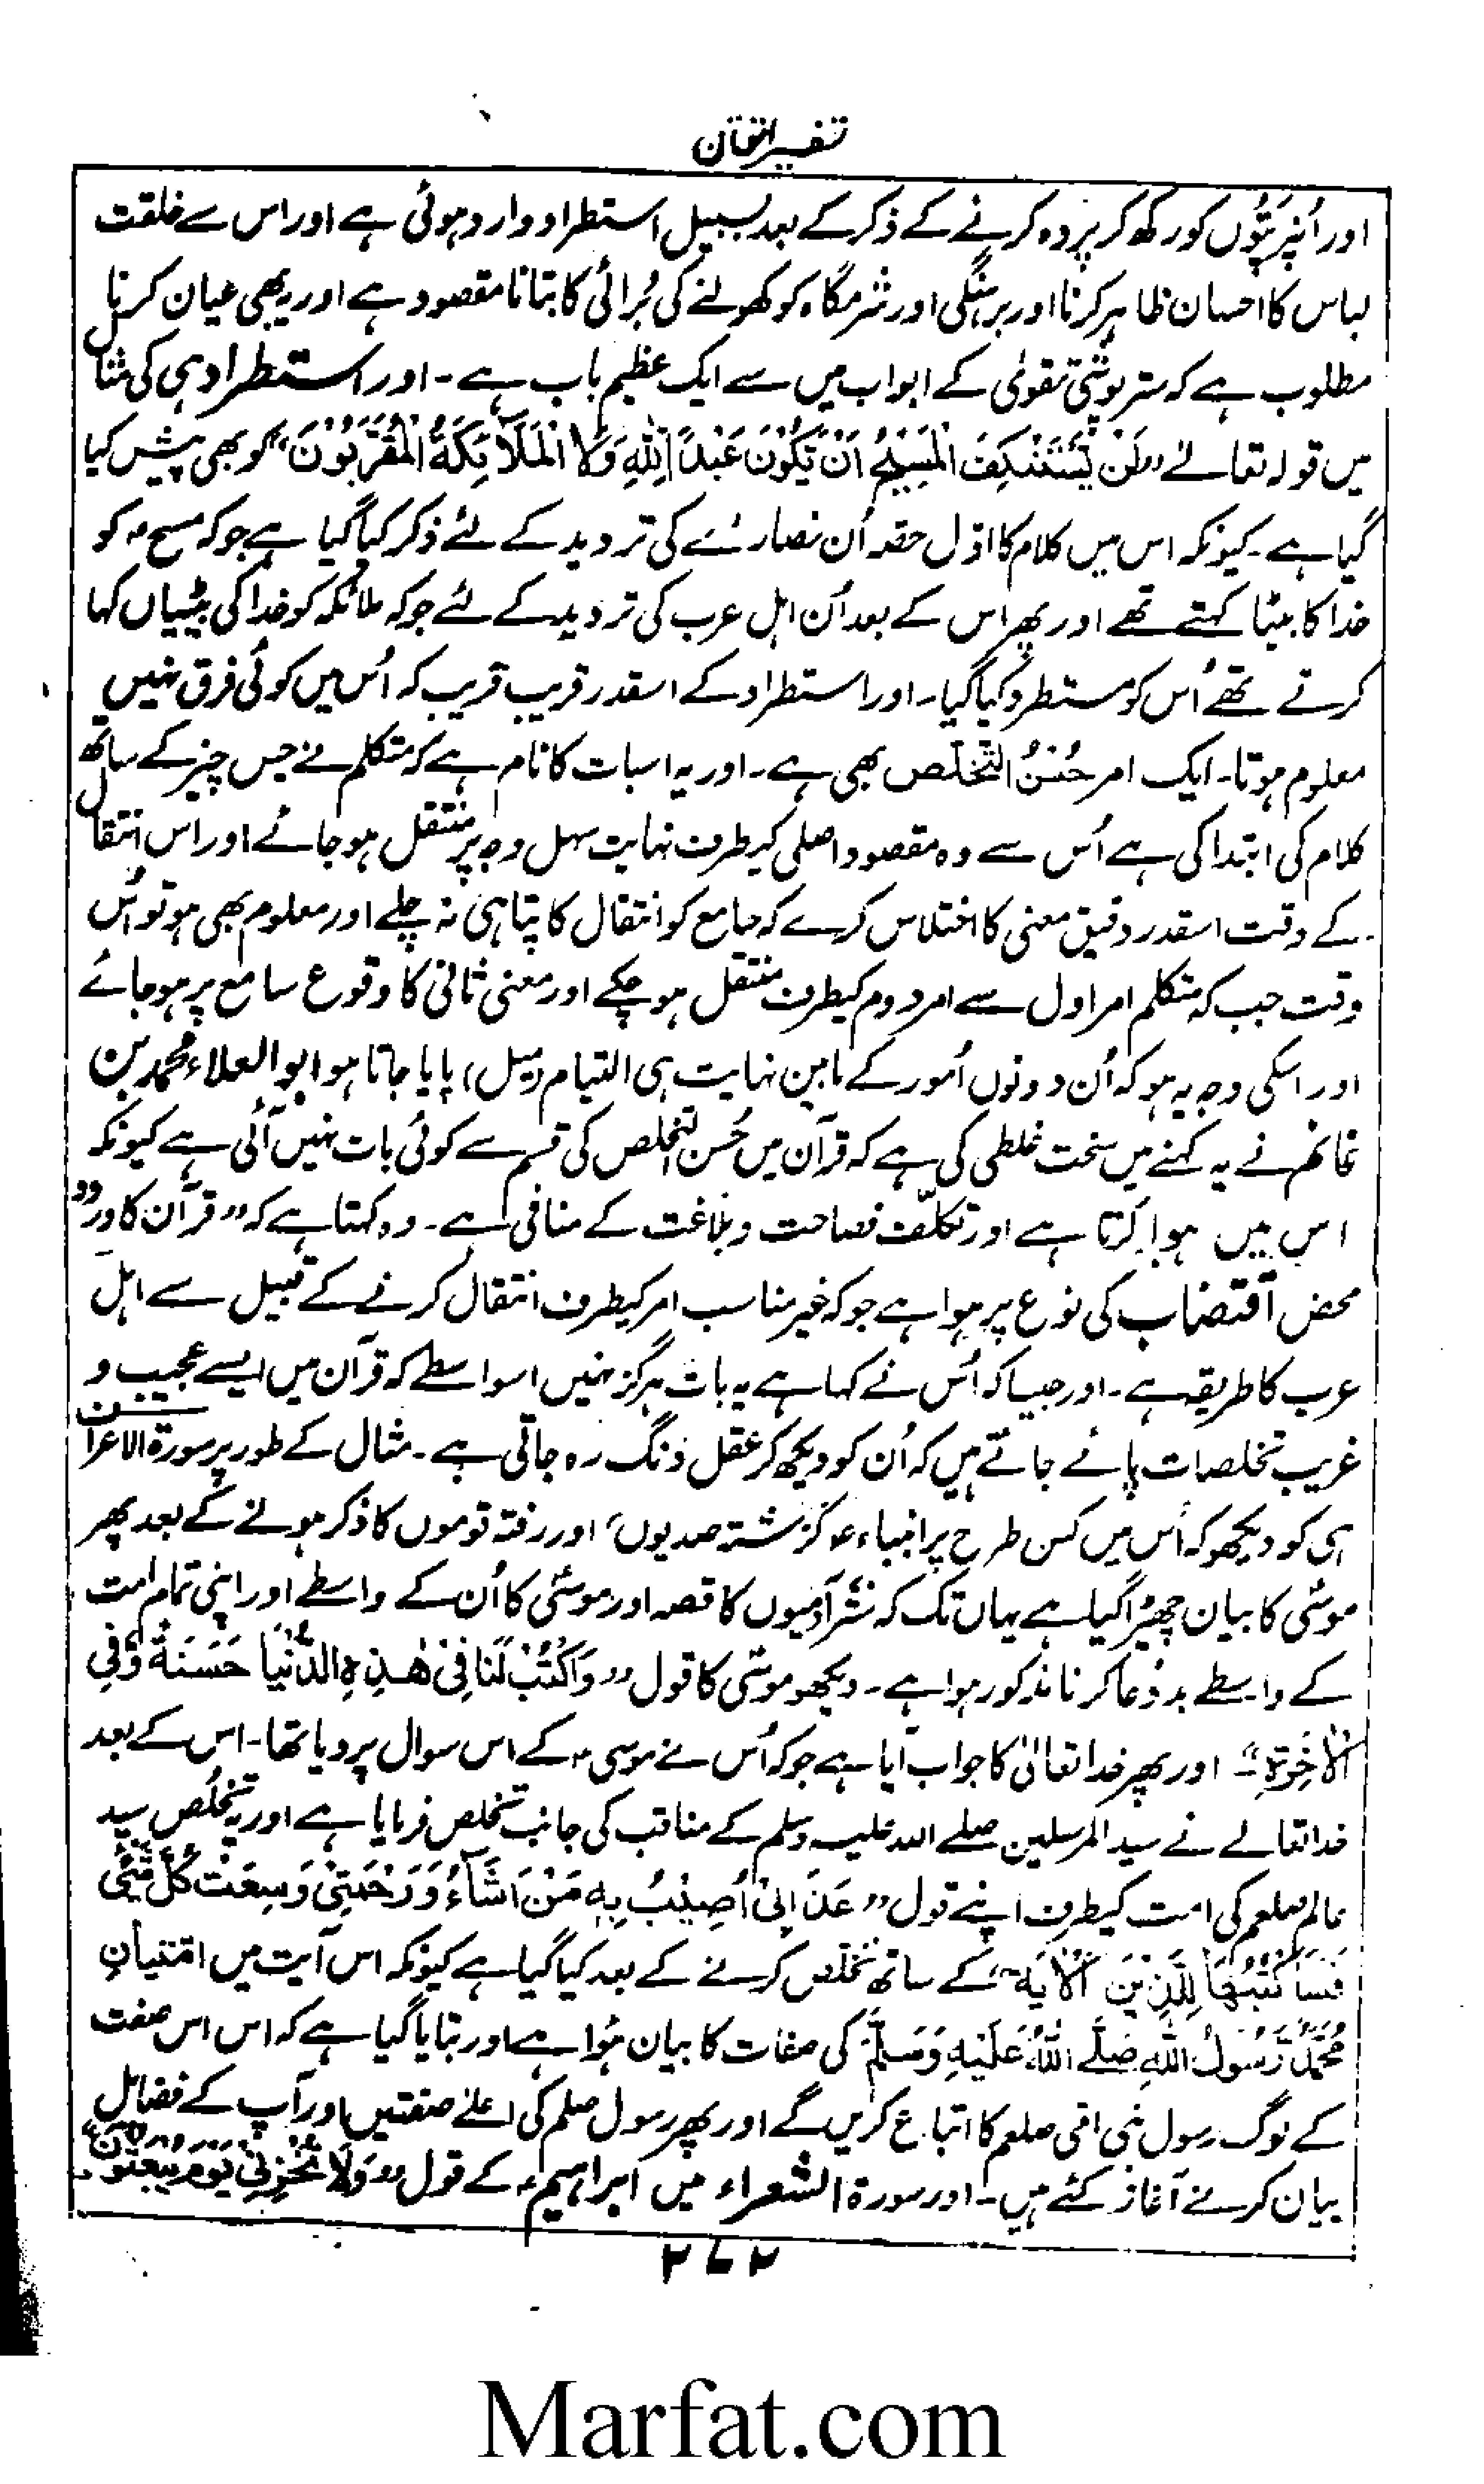 تفسیر اتقان
اور اُنپر پتّوں کو رکھ کر پردہ کرنے کے ذکر کے بعد بسبیل استطراد وارد ہوئی ہے اور اس سے خلقت
لباس کا احسان ظاہر کرنا اور برہنگی اور شرمگاہ کو کھولنے کی بُرائی کا بتانا مقصود ہے اور یہ بھی عیان کرنا
مطلوب ہے کہ ستر پوشی تقویٰ کے ابواب میں سے ایک عظیم باب ہے ۔ اور استطراد ہی کی مثال
میں قولہ تعالےٰ ”لَنْ یَّسْتَنْکِفَ الْمَسِیْحُ اَنْ یَّکُوْنَ عَبْدًا لِلّٰہِ وَلَا الْمَلَآئِکَۃُ الْمُقَرَّبُوْنَ“ کو بھی پیش کیا
گیا ہے ۔ کیونکہ اس میں کلام کا اوّل حصّہ اُن نصارےٰ کی تردید کے لئے ذکر کیا گیا ہے جو کہ مسیح ؑ کو
خدا کا بیٹا کہتے تھے اور پھر اس کے بعد اُن اہل عرب کی تردید کے لئے جو کہ ملائکہ کو خدا کی بیٹیاں کہا
کرتے تھے اُس کو مستطرد کیا گیا ۔ اور استطراد کے اسقدر قریب قریب کہ اُس میں کوئی فرق نہیں
معلوم ہوتا ۔ ایک امر حُسْنُ التَّخَلّص بھی ہے ۔ اور یہ اسبات کا نام ہے کہ متکلم نے جس چیز کے ساتھ
کلام کی ابتدا کی ہے اُس سے وہ مقصود اصلی کیطرف نہایت سہل وجہ پر منتقل ہو جائے اور اس انتقال
کے وقت اسقدر دقیق معنی کا اختلاس کرے کہ سامع کو انتقال کا پتا ہی نہ چلے اور معلوم بھی ہو تو اُس
وقت جب کہ متکلم امر اول سے امر دوم کیطرف منتقل ہو چکے اور معنی ثانی کا وقوع سامع پر ہو جائے
اور اسکی وجہ یہ ہو کہ اُن دونوں اُمور کے مابین نہایت ہی التیام (میل) پایا جاتا ہو ابو العلاء محمد بن
غانم نے یہ کہنے میں سخت غلطی کی ہے کہ قرآن میں حُسن التخلص کی قسم سے کوئی بات نہیں آئی ہے کیونکہ
اس میں ہوا کرتا ہے اور تکلّف فصاحت وبلاغت کے منافی ہے ۔ وہ کہتا ہے کہ ”قرآن کا ورود
محض اقتضاب کی نوع پر ہوا ہے جو کہ غیر مناسب امر کیطرف انتقال کرنے کے قبیل سے اہل
عرب کا طریقہ ہے ۔ اور جیسا کہ اُس نے کہا ہے یہ بات ہرگز نہیں اسواسطے کہ قرآن میں ایسے عجیب و
غریب تخلصات پائے جاتے ہیں کہ اُن کو دیکھ کر عقل دنگ رہ جاتی ہے ۔ مثال کے طور پر سورۃ الاعراف
ہی کو دیکھو کہ اُس میں کس طرح پر انبیاء ؑ گزشتہ صدیوں، اور رفتہ قوموں کا ذکر ہونے کے بعد پھر
موسٰیؑ کا بیان چھیڑا گیا ہے یہاں تک کہ ستّر آدمیوں کا قصہ اور موسٰیؑ کا اُن کے واسطے اور اپنی تمام امت
کے واسطے بدؤعا کرنا مذکور ہوا ہے ۔ دیکھو موسٰیؑ کا قول ”وَاکْتُبْ لَنَا فِیْ ھٰذِہِ الدُّنْیَا حَسَنَۃً وَّفِی
الْاٰخِرَۃِ“ اور پھر خدا تعالیٰ کا جواب آیا ہے جو کہ اُس نے موسی ؑ کے اس سوال پر دیا تھا ۔ اس کے بعد
خدا تعالےٰ نے سید المرسلین صلے اللہ علیہ وسلم کے مناقب کی جانب تخلص فرمایا ہے اور یہ تخلُص سید
عالم صلعم کی امت کیطرف اپنے قول ”عَذَابِیْ اُصِیْبُ بِہٖ مَنْ اَشَآءُ وَرَحْمَتِیْ وَسِعَتْ کُلَّ شَیْءٍ
فَسَاَکْتُبُھَا لِلَّذِیْنَ الْاٰیَۃ“ کے ساتھ تخلّص کرنے کے بعد کیا گیا ہے کیونکہ اس آیت میں امتیانِ
مُحَمَّدٌ رَّسُوْلُ اللّٰہِ صَلَّے اللّٰہُ عَلَیْہِ وَسَلَّمَ کی صفات کا بیان ہُوا ہے اور بتایا گیا ہے کہ اس اس صفت
کے لوگ رسول نبی امی صلعم کا اتباع کریں گے اور پھر رسول صلعم کی اعلےٰ صفتیں اور آپ کے فضائل
بیان کرنے آغاز کئے ہیں ۔ اور سورۃ الشعراء میں ابراہیم ؑ کے قول ”وَلَا تُخْزِنِیْ یَوْمَ یُبْعَثُوْنَ“
۲۷۲
Marfat.com